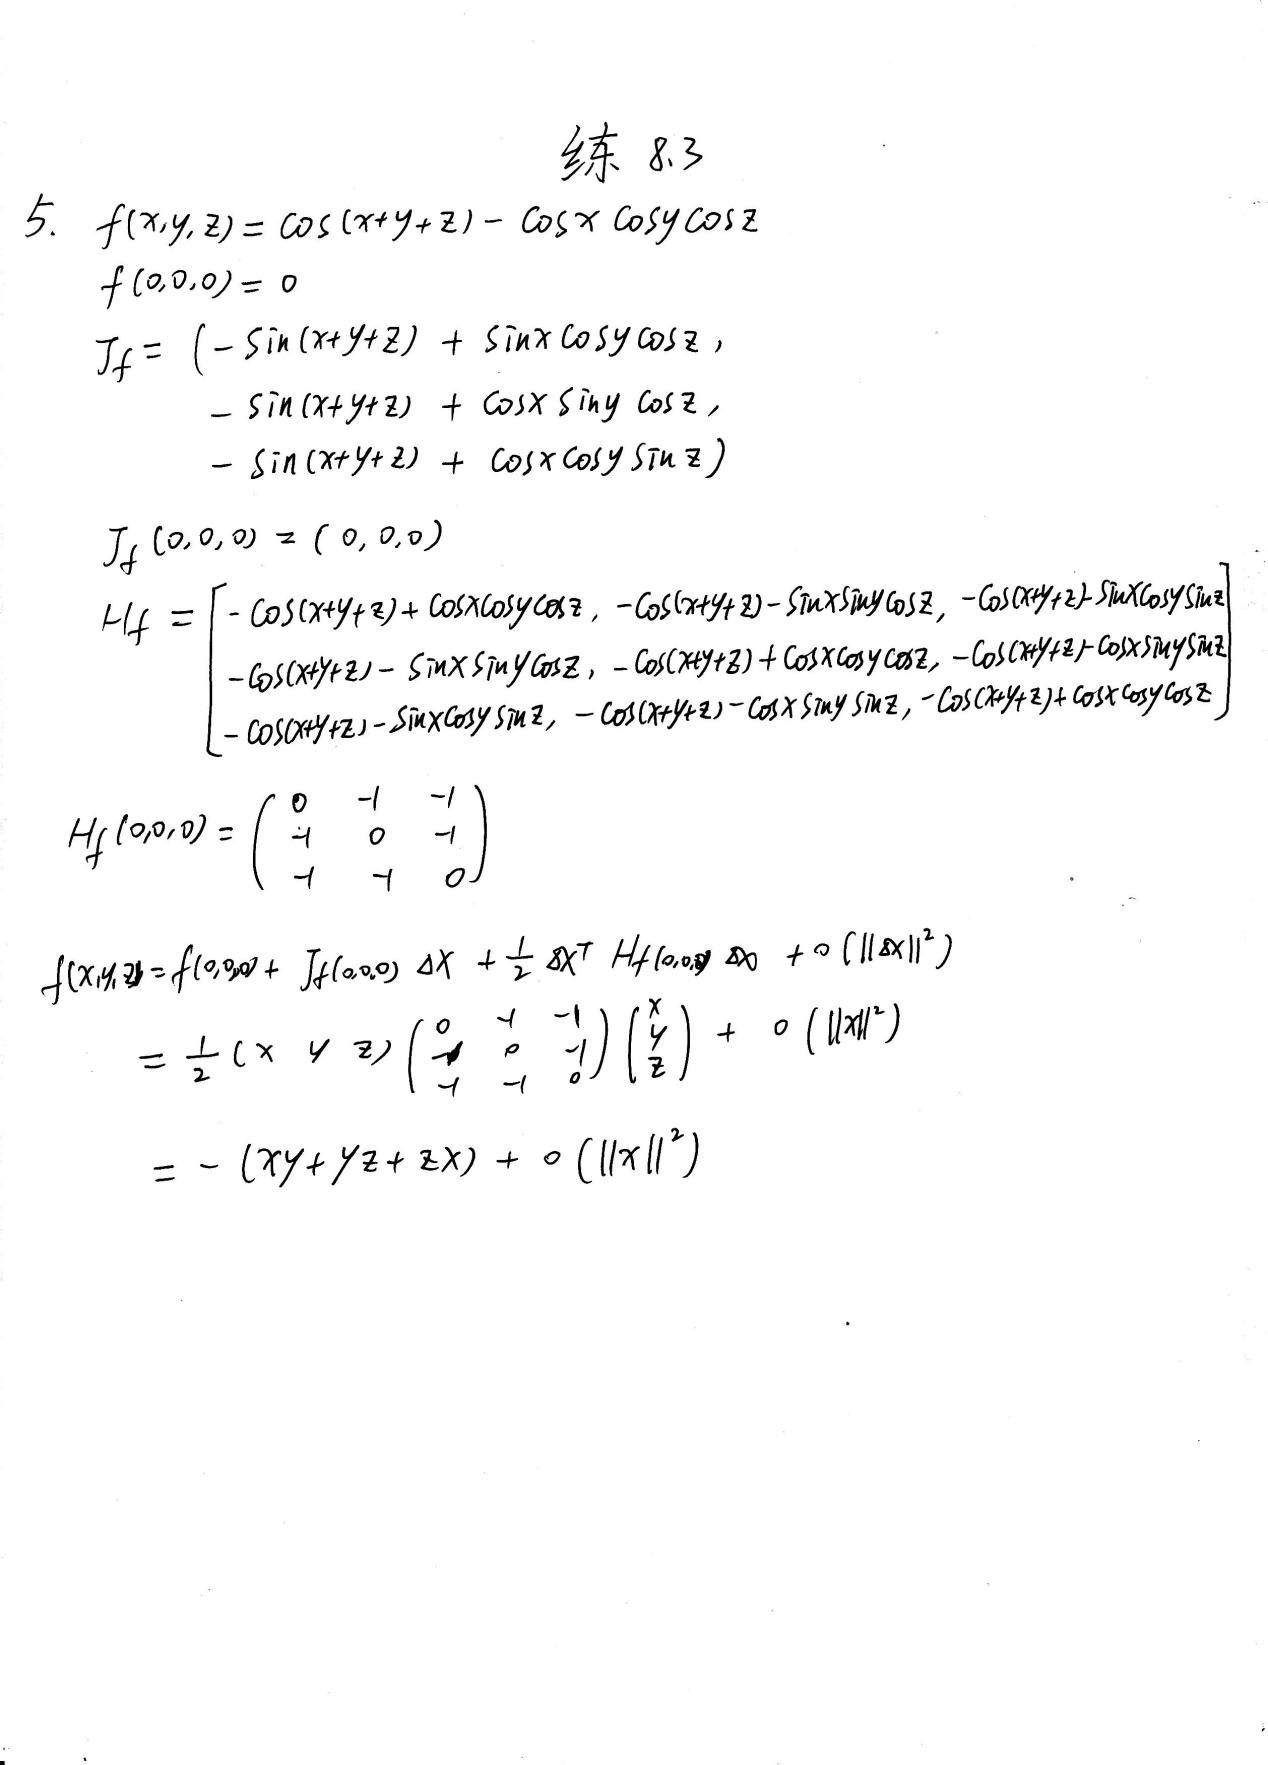 练 8.3
5. f(x,y,z) = cos(x+y+z) - cosx cosy cosz
f(0,0,0) = 0
Jf = (-sin(x+y+z) + sinx cosy cosz,
- sin(x+y+z) + cosx siny cosz,
- sin(x+y+z) + cosx cosy sinz)
Jf(0,0,0) = (0,0,0)
Hf = [-cos(x+y+z)+cosxcosycosz, -cos(x+y+z)-sinxsinycosz, -cos(x+y+z)-sinxcosysinz
-cos(x+y+z)-sinxsinycosz, -cos(x+y+z)+cosxcosycosz, -cos(x+y+z)-cosxsinysinz
-cos(x+y+z)-sinxcosysinz, -cos(x+y+z)-cosxsinysinz, -cos(x+y+z)+cosxcosycosz]
Hf(0,0,0) = ( 0 -1 -1
-1 0 -1
-1 -1 0 )
f(x,y,z) = f(0,0,0) + Jf(0,0,0) ΔX + 1/2 ΔX^T Hf(0,0,0) ΔX + o(||ΔX||²)
= 1/2 (x y z) ( 0 -1 -1 -1 0 -1 -1 -1 0 ) ( x y z ) + o(||x||²)
= - (xy+yz+zx) + o(||x||²)